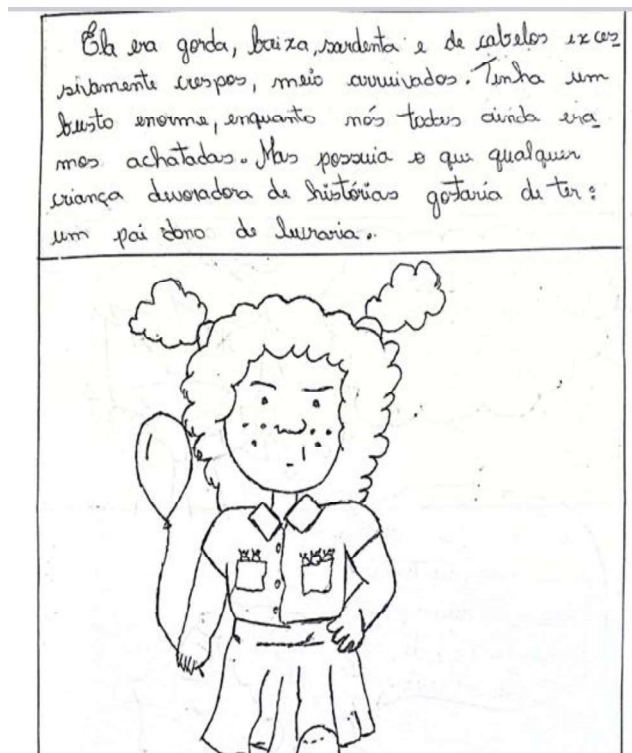 Ela era gorda, baixa, sardenta e de cabelos exces
sivamente crespos, meio arruivados. Tinha um
busto enorme, enquanto nós todas ainda era
mos achatadas. Mas possuia o que qualquer
criança devoradora de histórias gostaria de ter:
um pai dono de livraria.